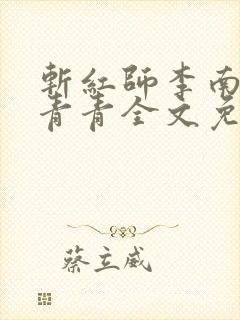 斬紅師李南
青青全文免
蔡立威